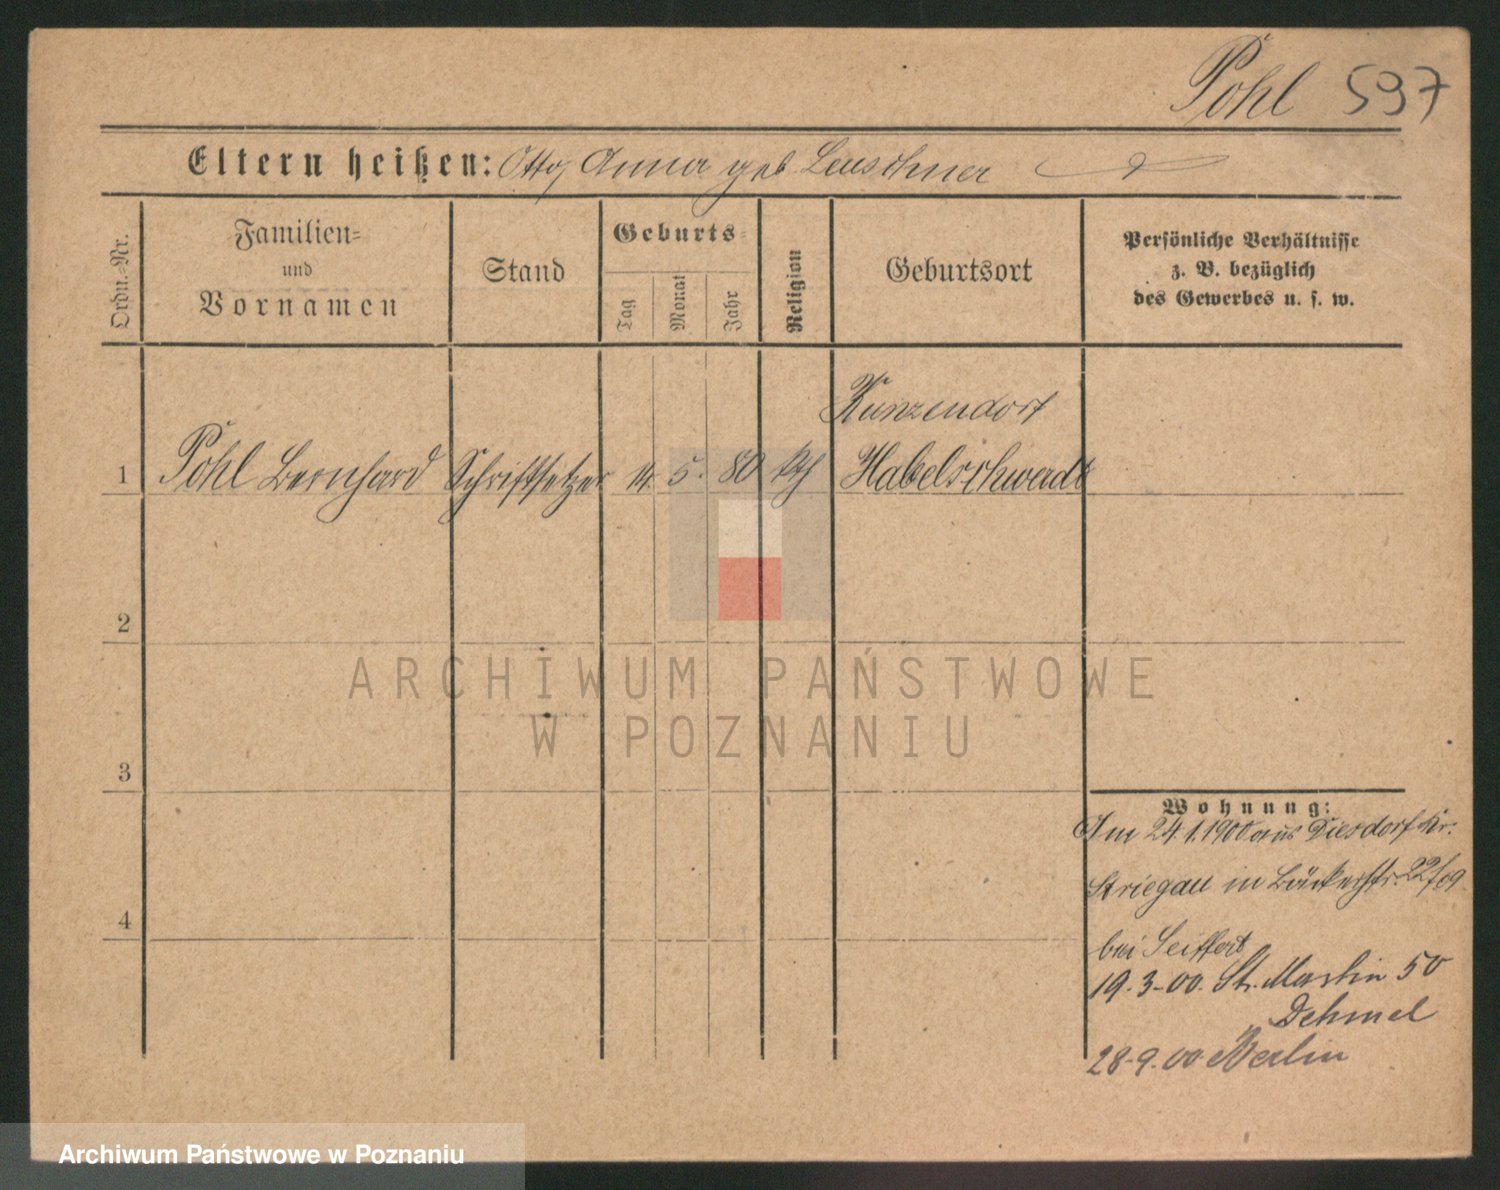 Pohl 597
Eltern heißen: Otto, Anna geb Leuschner
Ordn.-Nr.
Familien-
und
Vornamen
Stand
Geburts-
Tag
Monat
Jahr
Religion
Geburtsort
Persönliche Verhältnisse
z. B. bezüglich
des Gewerbes u. s. w.
Kunzendorf
1 Pohl Bernhard Schriftsetzer 14. 5. 80 kth Habelschwerdt
2
ARCHIWUM PAŃSTWOWE
W POZNANIU
3
Wohnung:
Am 24.1.1900 aus Diesdorf Kr.
Striegau in Bäckerstr. 22/
4
bei Seiffert
19.3-00. St. Martin 50
Dehmel
28-9.00 Berlin
Archiwum Państwowe w Poznaniu